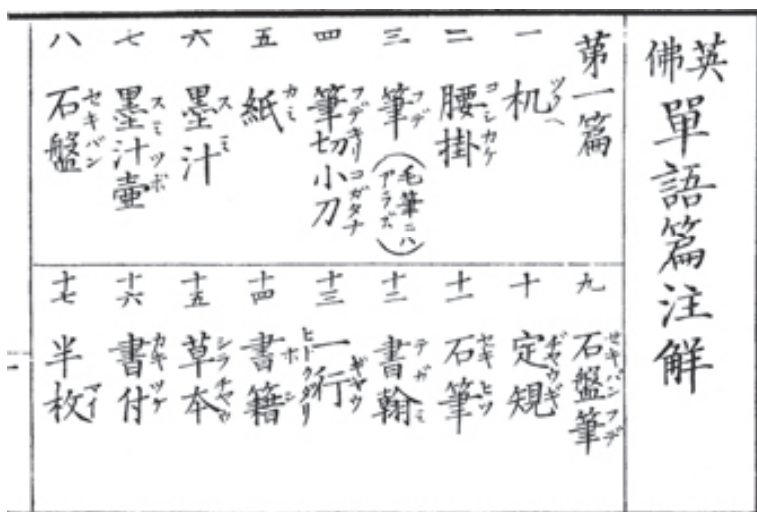 英佛 單語篇注解
第一篇
一 机 ツクヘ
二 腰掛 コシカケ
三 筆 フデ (毛筆ニハアラズ)
四 筆切小刀 フデキリコガタナ
五 紙 カミ
六 墨汁 スミ
七 墨汁壷 スミツボ
八 石盤 セキバン
九 石盤筆 セキバンフデ
十 定規 ヂヤウギ
十一 石筆 セキヒツ
十二 書翰 テガミ
十三 一行 ヒトクダリ ギヤウ
十四 書籍 ホン
十五 草本 シフチヤウ
十六 書付 カキツケ
十七 半枚 マイ